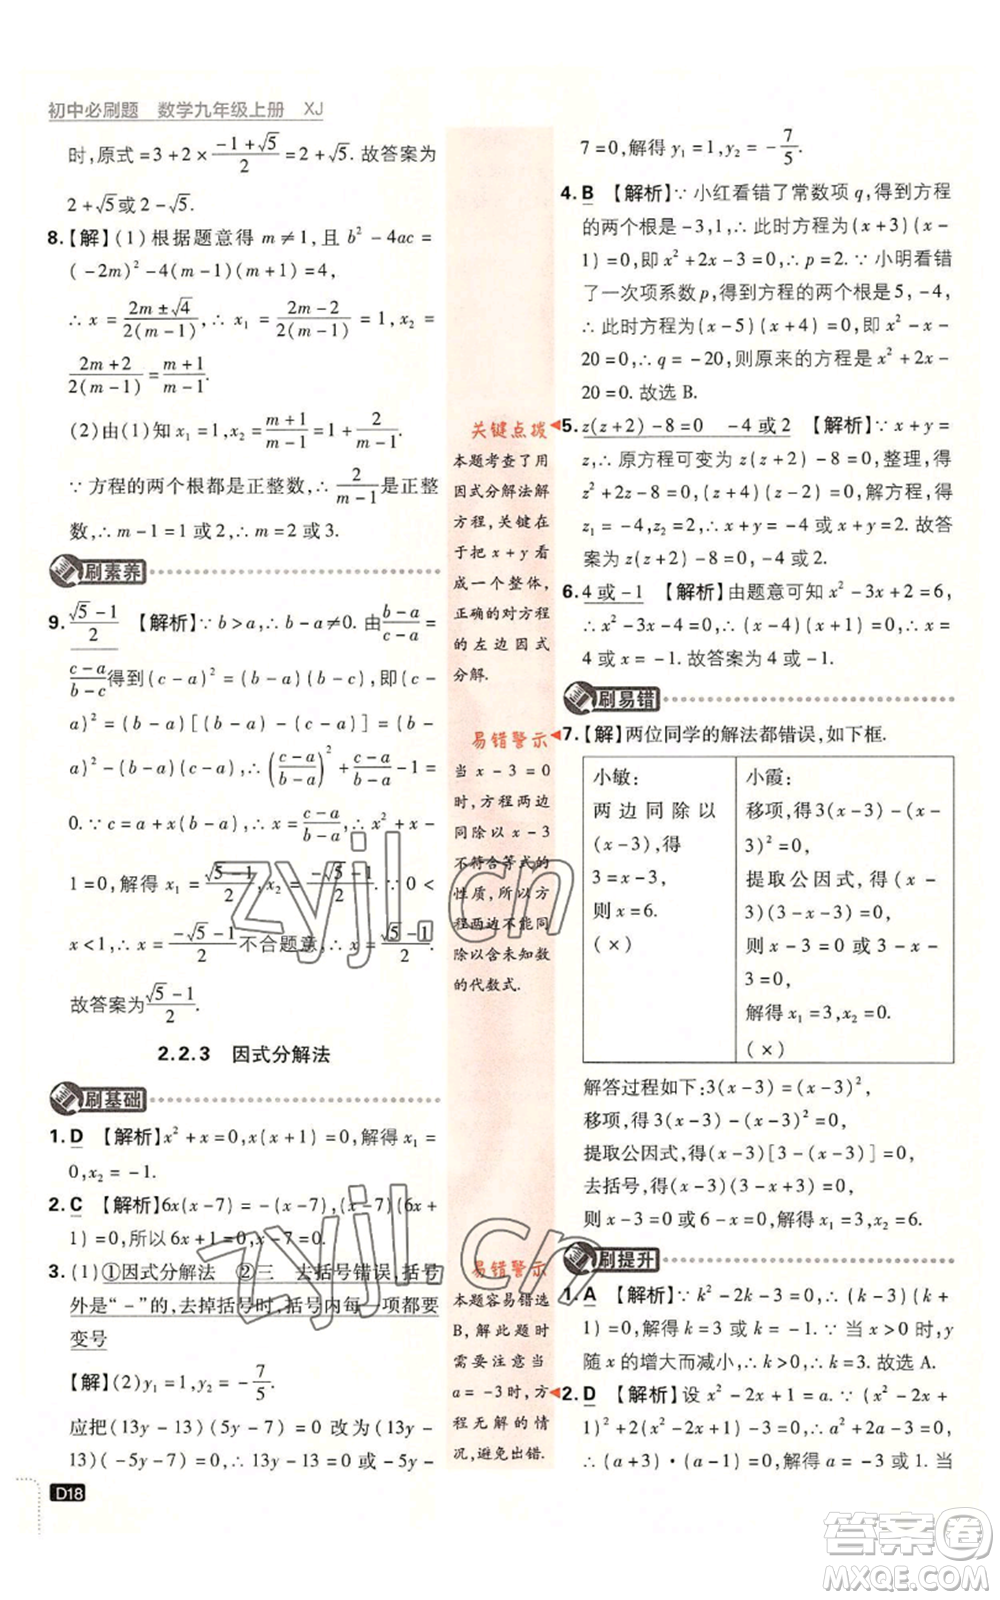 初中必刷题 数学九年级上册 XJ
时,原式=3+2×(-1+√5)/2=2+√5.故答案为
2+√5或2-√5.
8.【解】(1)根据题意得m≠1,且b²-4ac=
(-2m)²-4(m-1)(m+1)=4,
∴x=(2m±√4)/(2(m-1)),∴x₁=(2m-2)/(2(m-1))=1,x₂=
(2m+2)/(2(m-1))=(m+1)/(m-1).
(2)由(1)知x₁=1,x₂=(m+1)/(m-1)=1+2/(m-1).
∵方程的两个根都是正整数,∴2/(m-1)是正整
数,∴m-1=1或2,∴m=2或3.
刷素养
9.(√5-1)/2 【解析】∵b>a,∴b-a≠0.由(b-a)/(c-a)=
(c-a)/(b-c)得到(c-a)²=(b-a)(b-c),即(c-
a)²=(b-a)[(b-a)-(c-a)]=(b-a)²-
(b-a)(c-a),∴((c-a)/(b-a))²+(c-a)/(b-a)-1=
0.∵c=a+(b-a)x,∴(c-a)/(b-a)=x,∴x²+x-
1=0,解得x₁=(√5-1)/2,x₂=(-√5-1)/2.∵0<
x<1,∴x=(-√5-1)/2不合题意,∴x=(√5-1)/2.
故答案为(√5-1)/2.
2.2.3 因式分解法
刷基础
1.D 【解析】x²+x=0,x(x+1)=0,解得x₁=
0,x₂=-1.
2.C 【解析】6x(x-7)=-(x-7),(x-7)(6x+
1)=0,所以6x+1=0或x-7=0.
3.(1)①因式分解法 ②三 去括号错误,括号
外是“-”的,去掉括号时,括号内每一项都要
变号
【解】(2)y₁=1,y₂=-7/5.
应把(13y-13)(5y-7)=0改为(13y-
13)(-5y-7)=0,∴13y-13=0或-5y-
D18
关键点拨
本题考查了用
因式分解法解
方程,关键在
于把x+y看
成一个整体,
正确的对方程
的左边因式
分解.
易错警示
当x-3=0
时,方程两边
同除以x-3
不符合等式的
性质,所以方
程两边不能同
除以含未知数
的代数式.
易错警示
本题容易错选
B,解此题时
需要注意当
a=-3时,方
程无解的情
况,避免出错.
7=0,解得y₁=1,y₂=-7/5.
4.B 【解析】∵小红看错了常数项q,得到方程
的两个根是-3,1,∴此时方程为(x+3)(x-
1)=0,即x²+2x-3=0,∴p=2.∵小明看错
了一次项系数p,得到方程的两个根是5,-4,
∴此时方程为(x-5)(x+4)=0,即x²-x-
20=0,∴q=-20,则原来的方程是x²+2x-
20=0.故选B.
5.z(z+2)-8=0 -4或2 【解析】∵x+y=
z,∴原方程可变为z(z+2)-8=0,整理,得
z²+2z-8=0,∴(z+4)(z-2)=0,解方程,得
z₁=-4,z₂=2,∴z(z+2)-8=0.故答
案为z(z+2)-8=0,-4或2.
6.4或-1 【解析】由题意可知x²-3x+2=6,
∴x²-3x-4=0,∴(x-4)(x+1)=0,∴x=
4或x=-1.故答案为4或-1.
刷易错
7.【解】两位同学的解法都错误,如下框.
小敏:
两边同除以
(x-3),得
3=x-3,
则x=6.
(×)
小霞:
移项,得3(x-3)-(x-
3)²=0,
提取公因式,得(x-
3)(3-x-3)=0,
则x-3=0或3-x-
3=0,
解得x₁=3,x₂=0.
(×)
解答过程如下:3(x-3)=(x-3)²,
移项,得3(x-3)-(x-3)²=0,
提取公因式,得(x-3)[3-(x-3)]=0,
去括号,得(x-3)(3-x+3)=0,
则x-3=0或6-x=0,解得x₁=3,x₂=6.
刷提升
1.A 【解析】∵k²-2k-3=0,∴(k-3)(k+
1)=0,解得k=3或k=-1.∵当x>0时,y
随x的增大而减小,∴k>0,∴k=3.故选A.
2.D 【解析】设x²-2x+1=a.∵(x²-2x+
1)²+2(x²-2x+1)-3=0,∴a²+2a-3=0,
∴(a+3)·(a-1)=0,解得a=-3或1.当
zyjl.cn
zyjl.cn
答案卷
MXQE.COM